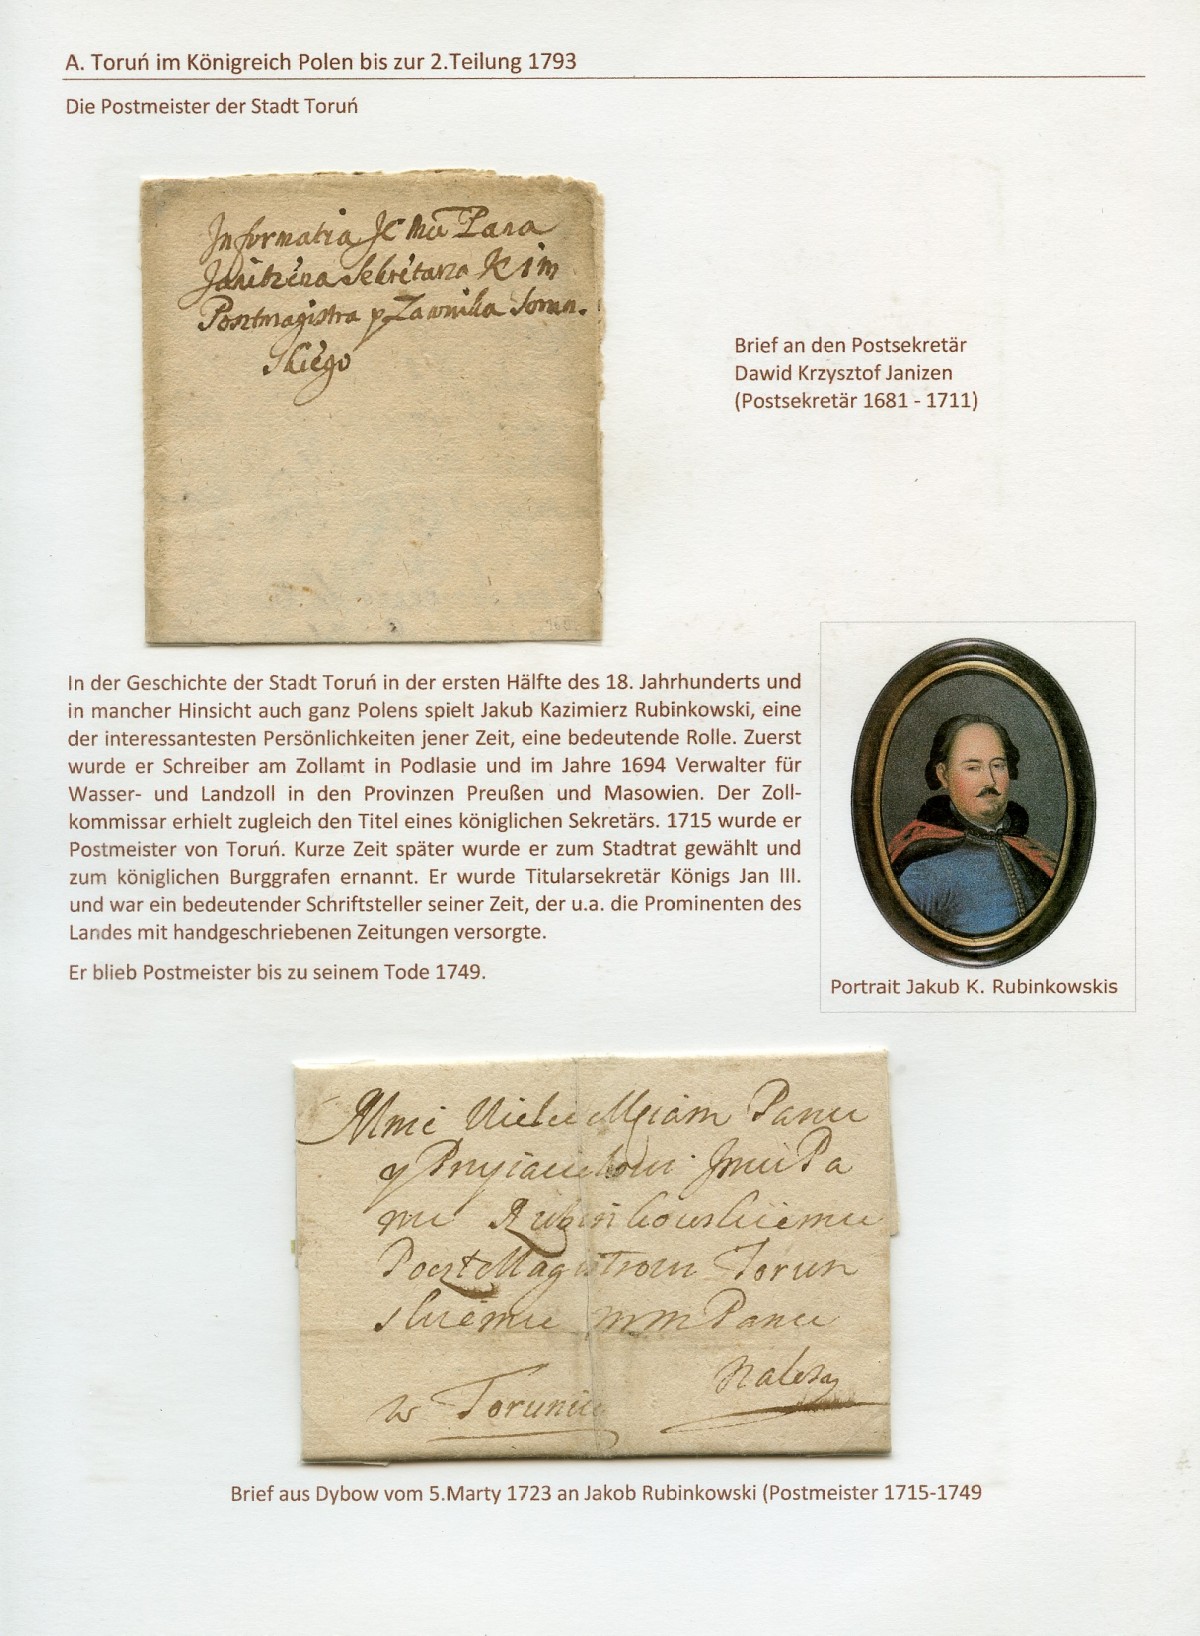 A. Toruń im Königreich Polen bis zur 2.Teilung 1793
Die Postmeister der Stadt Toruń
Informatia Je Mci Pana
Janitzena Sekretarza K i m
Posztmagistra y Zawnika Torun.
skiégo
Brief an den Postsekretär
Dawid Krzysztof Janizen
(Postsekretär 1681 - 1711)
In der Geschichte der Stadt Toruń in der ersten Hälfte des 18. Jahrhunderts und
in mancher Hinsicht auch ganz Polens spielt Jakub Kazimierz Rubinkowski, eine
der interessantesten Persönlichkeiten jener Zeit, eine bedeutende Rolle. Zuerst
wurde er Schreiber am Zollamt in Podlasie und im Jahre 1694 Verwalter für
Wasser- und Landzoll in den Provinzen Preußen und Masowien. Der Zoll-
kommissar erhielt zugleich den Titel eines königlichen Sekretärs. 1715 wurde er
Postmeister von Toruń. Kurze Zeit später wurde er zum Stadtrat gewählt und
zum königlichen Burggrafen ernannt. Er wurde Titularsekretär Königs Jan III.
und war ein bedeutender Schriftsteller seiner Zeit, der u.a. die Prominenten des
Landes mit handgeschriebenen Zeitungen versorgte.
Er blieb Postmeister bis zu seinem Tode 1749.
Portrait Jakub K. Rubinkowskis
Panu
y Przyiacielowi Jmci Pa
nu Rubinkowskiemu
PocztMagistrowi Torun
skiemu mm Panu
w Toruniu
Brief aus Dybow vom 5.Marty 1723 an Jakob Rubinkowski (Postmeister 1715-1749